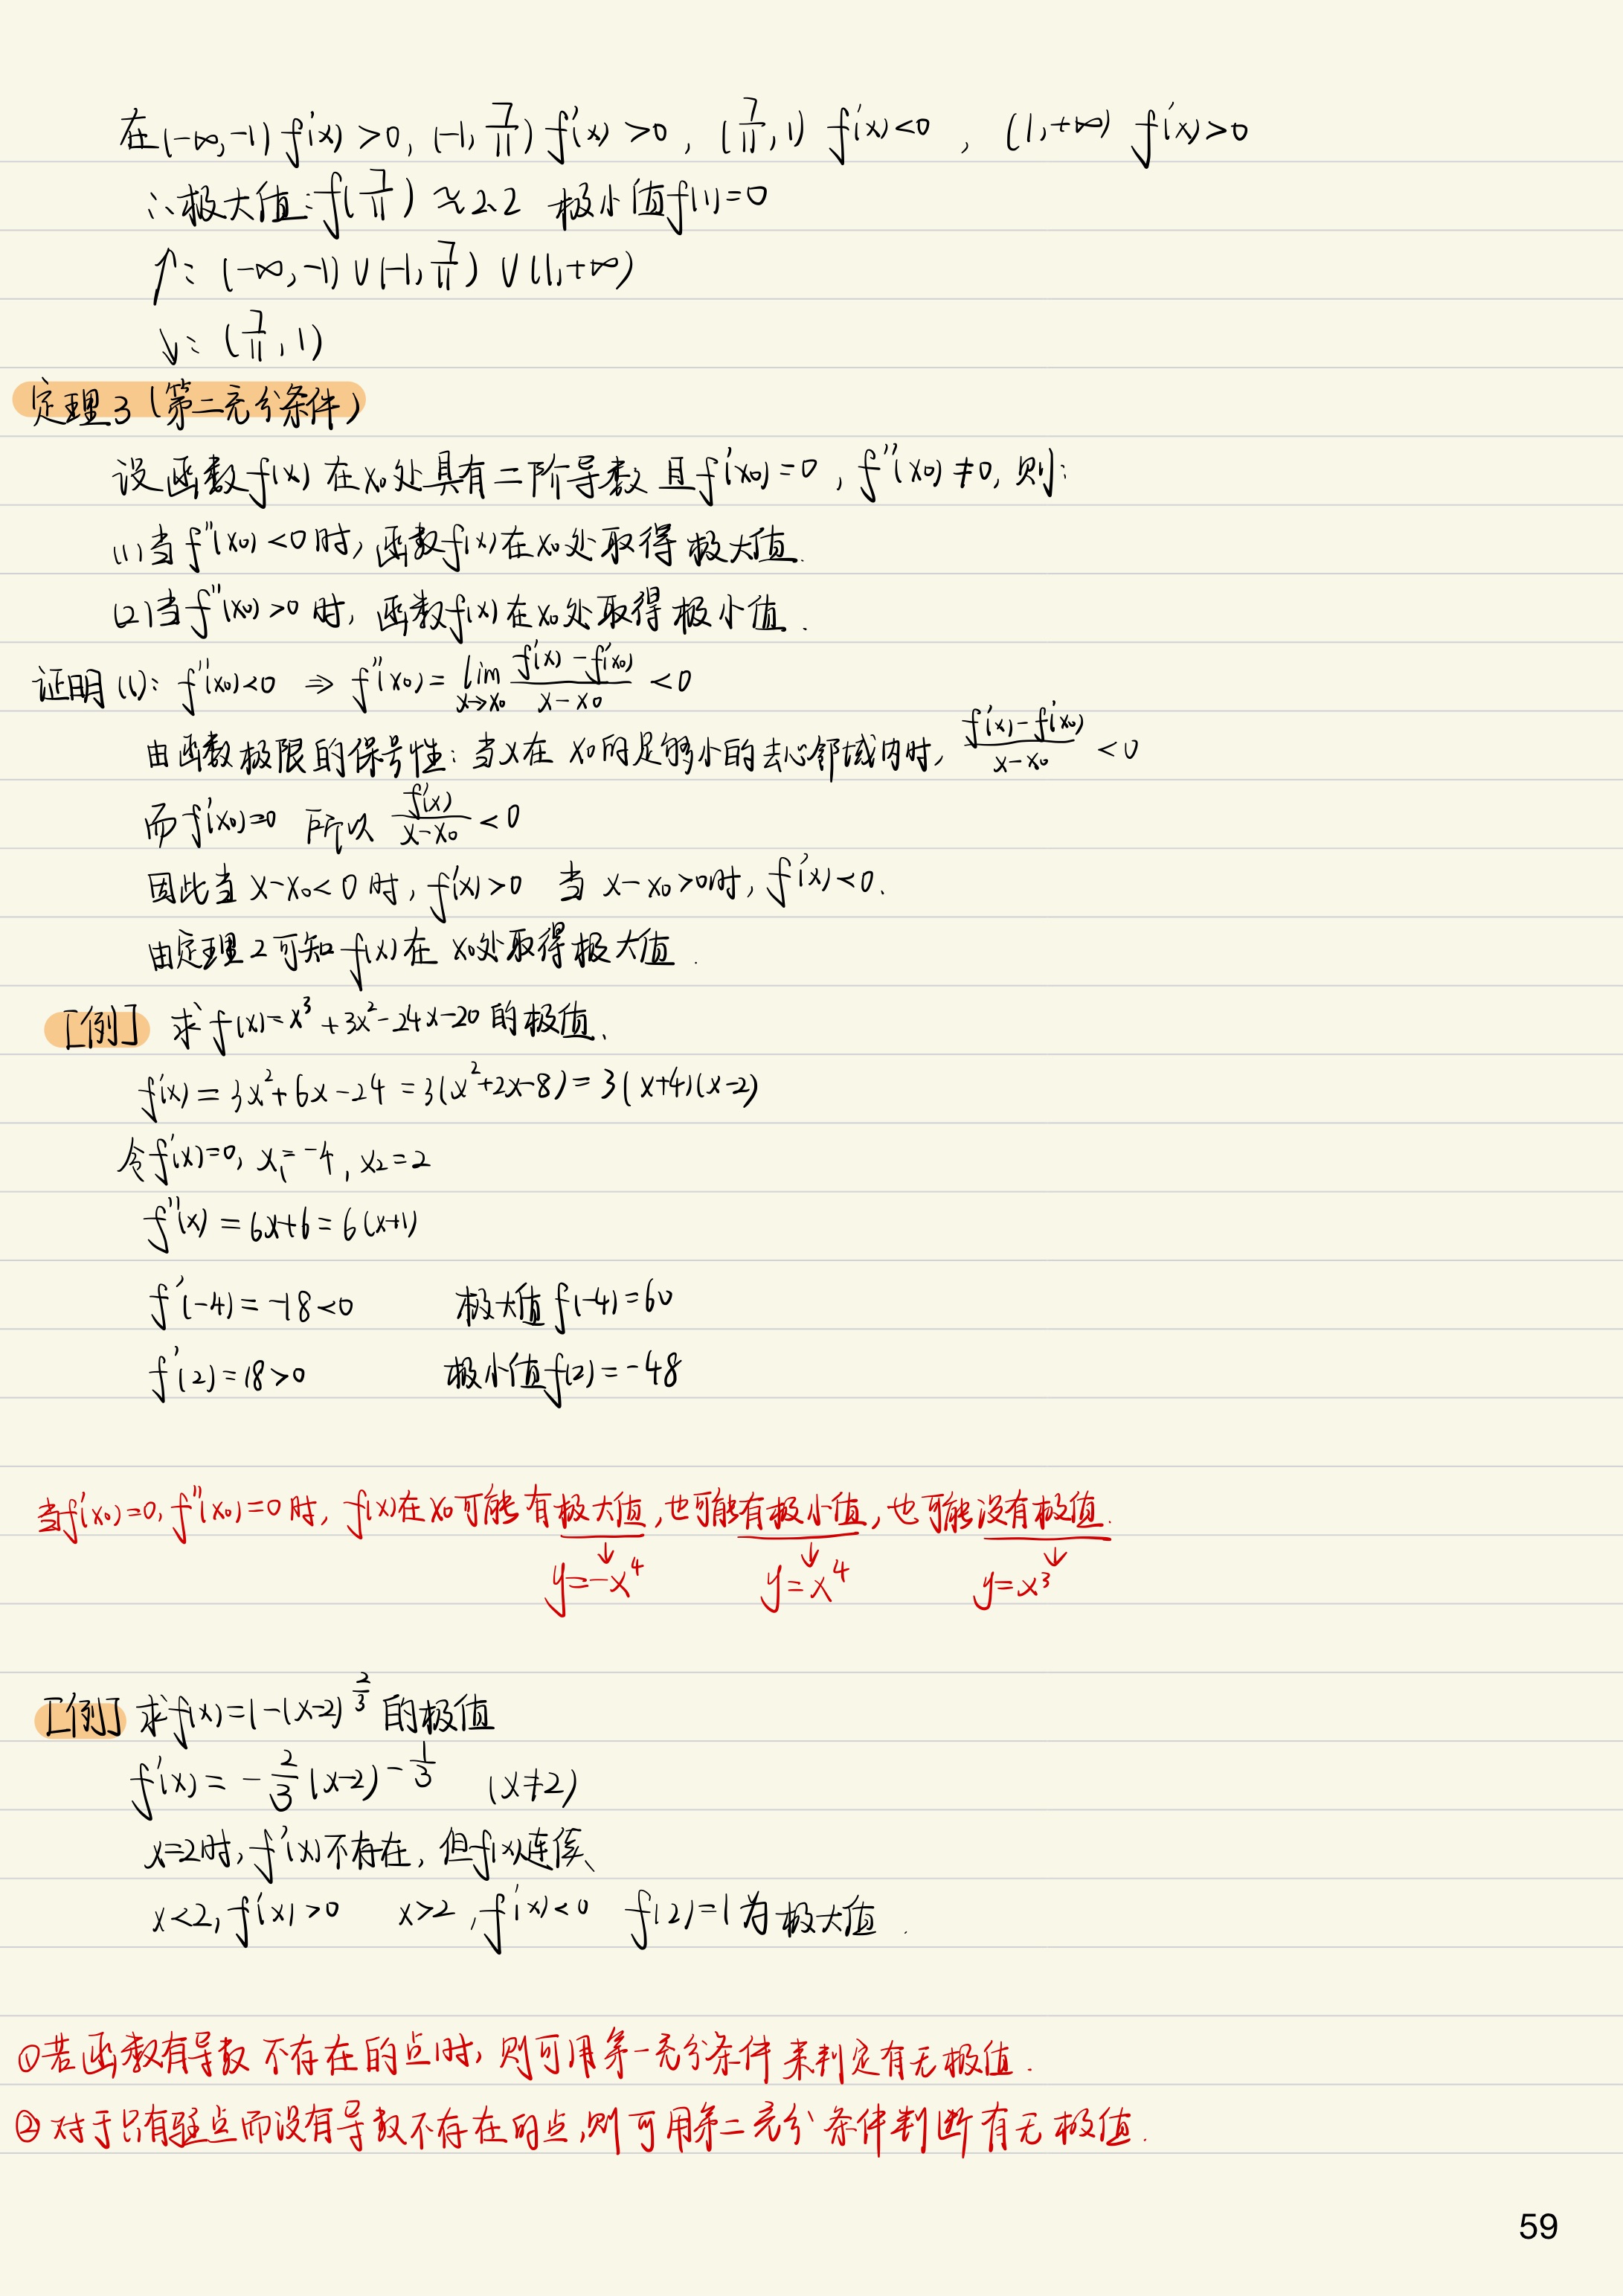 在(-∞,-1) f'(x)>0, (-1, 7/11) f'(x)>0, (7/11, 1) f'(x)<0, (1,+∞) f'(x)>0
∴极大值:f(7/11)≈2.2 极小值f(1)=0
↑: (-∞,-1)∪(-1, 7/11)∪(1,+∞)
↓: (7/11, 1)
定理3(第二充分条件)
设函数f(x)在x₀处具有二阶导数且f'(x₀)=0, f''(x₀)≠0, 则:
(1)当f''(x₀)<0时, 函数f(x)在x₀处取得极大值.
(2)当f''(x₀)>0时, 函数f(x)在x₀处取得极小值.
证明(1): f''(x₀)<0 ⇒ f''(x₀)=lim x→x₀ (f'(x)-f'(x₀))/(x-x₀) <0
由函数极限的保号性: 当x在x₀的足够小的去心邻域内时, (f'(x)-f'(x₀))/(x-x₀) <0
而f'(x₀)=0 所以 f'(x)/(x-x₀) <0
因此当x-x₀<0时, f'(x)>0 当x-x₀>0时, f'(x)<0.
由定理2可知f(x)在x₀处取得极大值.
[例] 求f(x)=x³+3x²-24x-20的极值.
f'(x)=3x²+6x-24=3(x²+2x-8)=3(x+4)(x-2)
令f'(x)=0, x₁=-4, x₂=2
f''(x)=6x+6=6(x+1)
f'(-4)=-18<0 极大值f(-4)=60
f'(2)=18>0 极小值f(2)=-48
当f'(x₀)=0, f''(x₀)=0时, f(x)在x₀可能有极大值, 也可能有极小值, 也可能没有极值.
↓ ↓ ↓
y=-x⁴ y=x⁴ y=x³
[例] 求f(x)=1-(x-2)^(2/3) 的极值
f'(x)=-2/3(x-2)^(-1/3) (x≠2)
x=2时, f'(x)不存在, 但f(x)连续.
x<2, f'(x)>0 x>2, f'(x)<0 f(2)=1为极大值.
①若函数有导数不存在的点时, 则可用第一充分条件来判定有无极值.
②对于只有驻点而没有导数不存在的点, 则可用第二充分条件判断有无极值.
59